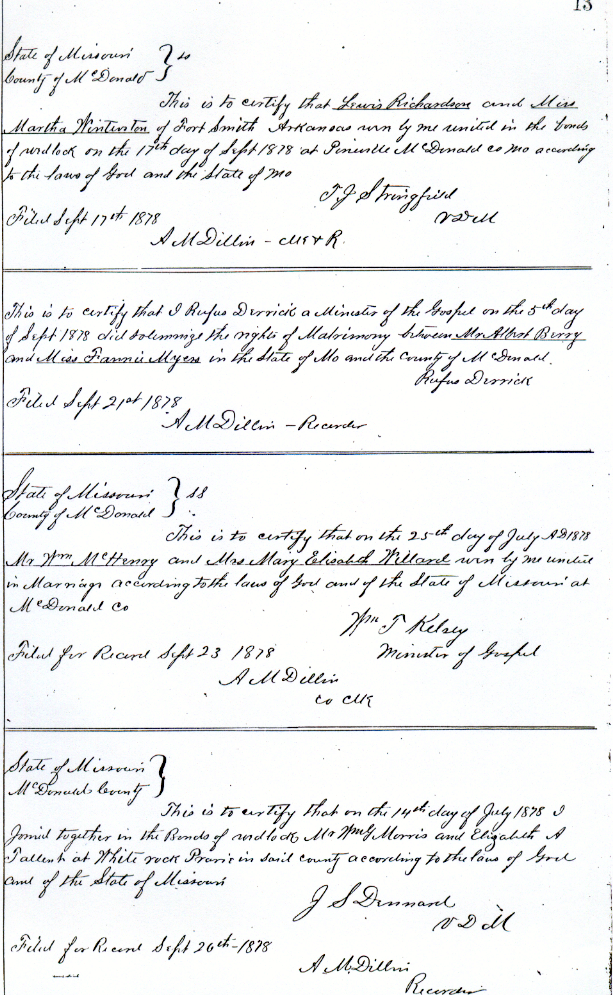 13
State of Missouri
County of McDonald } ss
This is to certify that Lewis Richardson and Miss
Martha Winterton of Fort Smith Arkansas wrn by me united in the bonds
of wedlock on the 17th day of Sept 1878 at Pineville McDonald co Mo according
to the laws of God and the State of Mo
T J Stringfield
V D M
Filed Sept 17th 1878
A M Dillin - Clk & R.
This is to certify that I Rufus Derrick a Minister of the Gospel on the 5th day
of Sept 1878 did solemnize the rights of Matrimony between Mr Albert Berry
and Miss Fannie Myers in the State of Mo and the County of McDonald.
Rufus Derrick
Filed Sept 21st 1878
A M Dillin - Recorder
State of Missouri
County of McDonald } SS
This is to certify that on the 25th day of July AD 1878
Mr Wm McHenry and Mrs Mary Elisabeth Willard wrn by me united
in Marriage according to the laws of God and of the State of Missouri at
McDonald Co
Wm T Kelsey
Minister of Gospel
Filed for Record Sept 23 1878
A M Dillin
Co Clk
State of Missouri
McDonald County }
This is to certify that on the 14th day of July 1878 I
Joined together in the Bonds of wedlock Mr Wm G Morris and Elizabeth A
Tallent at White rock Prarie in said county according to the laws of God
and of the State of Missouri
J S Dennard
V D M
Filed for Record Sept 26th - 1878
A M Dillin
Recorder